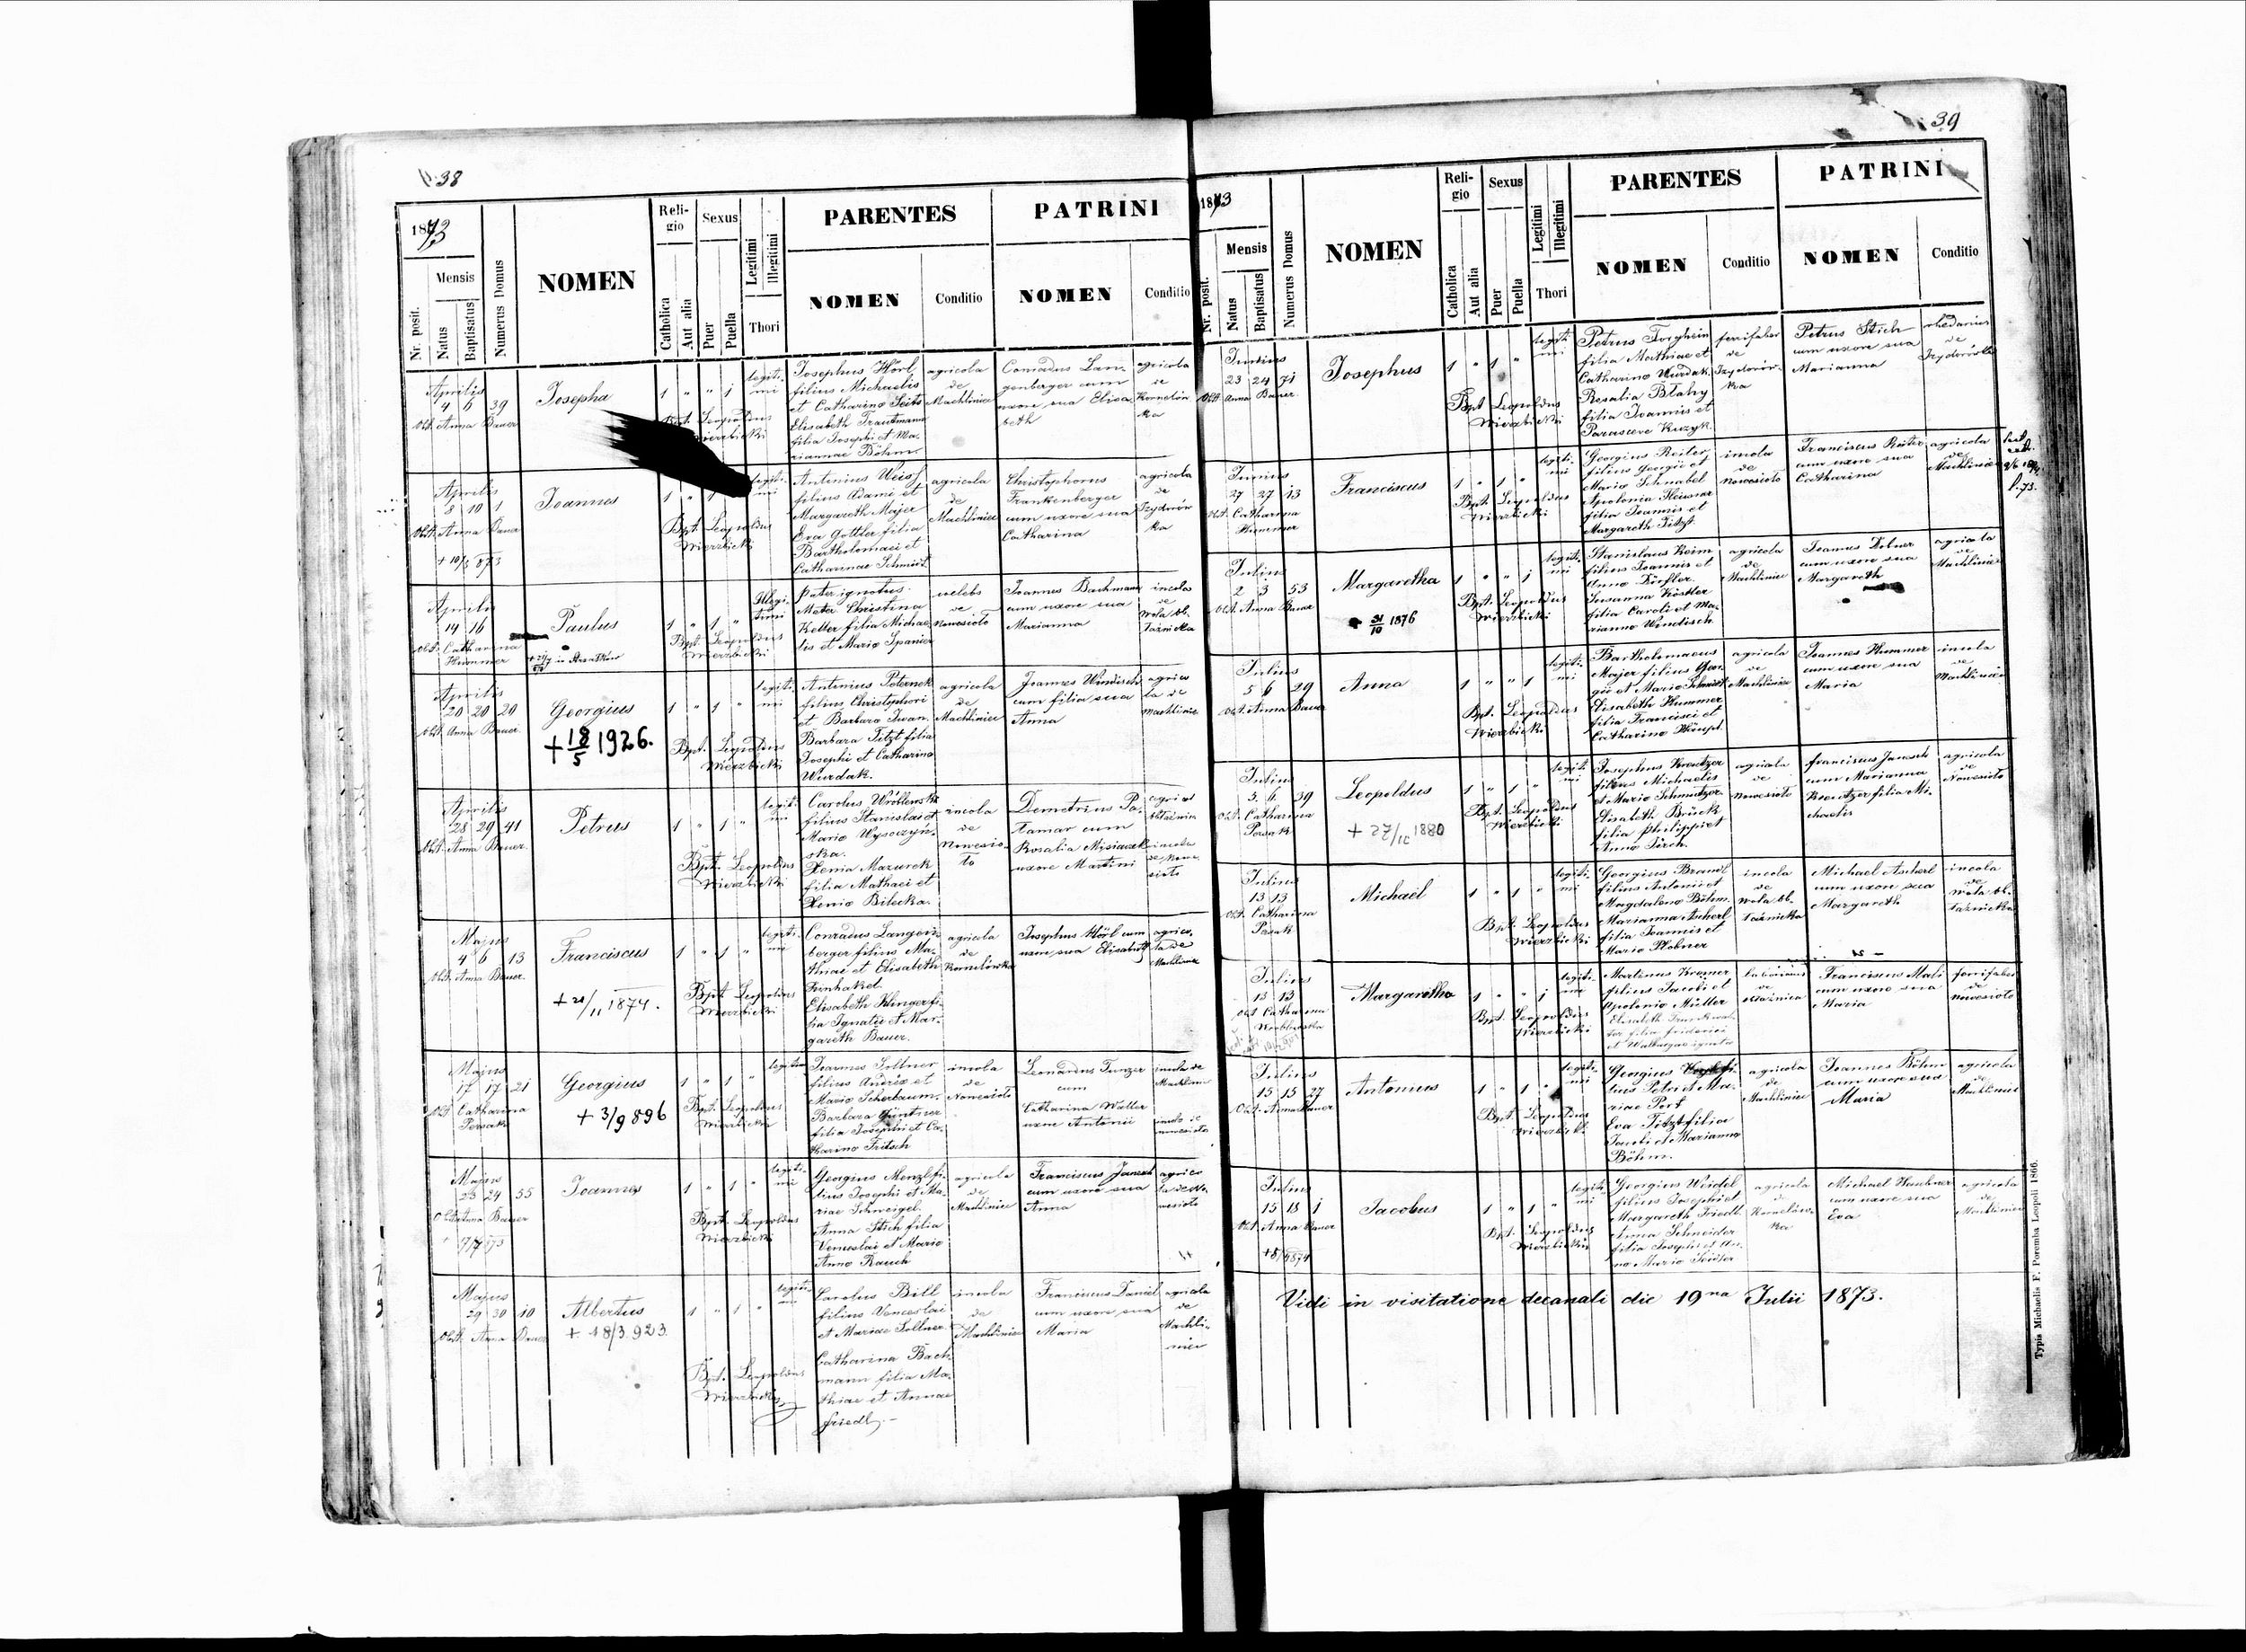 p. 38
1873
Nr. posit.
Mensis
Natus
Baptisatus
Numerus Domus
NOMEN
Reli-
gio
Catholica
Aut alia
Sexus
Puer
Puella
Legitimi
Illegitimi
Thori
PARENTES
NOMEN
Conditio
PATRINI
NOMEN
Conditio
Aprilis
4 6 39
Obst. Anna Bauer
Josepha
1 " " 1
legiti-
mi
Leopoldus
Wierzbicki
Josephus Hörl
filius Michaelis
et Catharina Seits
Elisabeth Trautmann
filia Josephi et Ma-
riannae Böhm.
agricola
de
Machliniec
Conradus Lan-
genberger cum
uxore sua Elisa-
beth
agricola
de
Kornelów-
ka
Aprilis
8 10 1
Obst. Anna Bauer
+ 10/5 873
Joannes
Bpt. Leopoldus
Wierzbicki
Antonius Weis
filius Adami et
Margareth Majer
Eva Gottler filia
Bartholomaei et
Catharinae Schmidt
agricola
de
Machliniec
Christophorus
Frankenberger
cum uxore sua
Catharina
agricola
de
Izydorów
ka
Aprilis
14 16
Obst. Catharina
Hummer
Paulus
1 " 1 "
Bpt. Leopoldus
Wierzbicki
Illegi-
timi
Pater ignotus.
Mater Christina
Keller filia Michae-
lis et Maria Spanier
coelebs
de
Nowesioło
Joannes Bachmann
cum uxore sua
Marianna
incola
de
Wola Ob-
łaźnicka
Aprilis
20 20 20
Obst. Anna Bauer
Georgius
+ 18/5 1926.
1 " 1 "
Bpt. Leopoldus
Wierzbicki
legiti-
mi
Antonius Peternek
filius Christophori
et Barbara Iwan.
Barbara Titzt filia
Josephi et Catharina
Wurdak.
agricola
de
Machliniec
Joannes Windisch
cum filia sua
Anna
agrico
la de
Machliniec
Aprilis
28 29 41
Obst. Anna Bauer
Petrus
1 " 1 "
Bpt. Leopoldus
Wierzbicki
legiti-
mi
Carolus Wróblewski
filius Stanislai et
Maria Wysoczyń-
ska.
Xenia Mazurek
filia Mathaei et
Xenia Bilecka.
incola
de
Nowesio-
ło
Demetrius Pa-
łamar cum
Rosalia Misiaczek
uxore Martini
incola
de Nowe
sioło
Majus
4 6 13
Obst. Anna Bauer.
Franciscus
+ 21/11 1874.
1 " 1 "
Bpt. Leopoldus
Wierzbicki
legiti-
mi
Conradus Langen-
berger filius Ma-
thiae et Elisabeth
Zinhakel
Elisabeth Klinger fi-
lia Ignatii et Mar-
gareth Bauer.
agricola
de
Kornelówka
Josephus Hörl cum
uxore sua Elisabeth
agrico
la de
Machliniec
Majus
17 17 21
Obst. Catharina
Persak
Georgius
+ 3/9 896
1 " 1 "
Bpt. Leopoldus
Wierzbicki
legitimi
Joannes Sollner
filius Andrea et
Maria Scherbaum.
Barbara Güntner
filia Josephi et Ca-
tharina Fritsch
incola
de
Nowesioło
Leonardus Tunzer
cum
Catharina Walter
uxore Antonii
incola de
Machliniec
incola de
Nowesioło
Majus
23 24 55
Obst. Anna Bauer
Joannes
1 " 1 "
Bpt. Leopoldus
Wierzbicki
legiti-
mi
Georgius Menzl fi-
lius Josephi et Ma-
riae Schweigel.
Anna Stich filia
Venceslai et Maria
Anna Rauch
agricola
de
Machliniec
Franciscus Janesch
cum uxore sua
Anna
agrico
la de No-
wesioło
Majus
29 30 10
Obst. Anna Bauer
Albertus
+ 18/3 923
1 " 1 "
Bpt. Leopoldus
Wierzbicki
legiti-
mi
Carolus Bill
filius Venceslai
et Mariae Sollner
Catharina Bach-
mann filia Ma-
thiae et Annae
Friedl.-
incola
de
Machliniec
Franciscus Daniel
cum uxore sua
Maria
agricola
de
Machli-
niec
39
1873
Nr. posit.
Mensis
Natus
Baptisatus
Numerus Domus
NOMEN
Reli-
gio
Catholica
Aut alia
Sexus
Puer
Puella
Legitimi
Illegitimi
Thori
PARENTES
NOMEN
Conditio
PATRINI
NOMEN
Conditio
Junius
23 24 71
Obst. Anna Bauer.
Josephus
1 " 1 "
Bpt. Leopoldus
Wierzbicki
legiti-
mi
Petrus Forghein
filia Mathiae et
Catharina Wurdak.
Rosalia Błahy
filia Joannis et
Parasceve Kuzyk.
ferrifaber
de
Izydorów-
ka
Petrus Stich
cum uxore sua
Marianna
rhedarius
de
Izydorówka
Junius
27 27 13
Obst. Catharina
Hummer
Franciscus
1 " 1 "
Bpt. Leopoldus
Wierzbicki
legiti-
mi
Georgius Reiter
filius Georgii et
Maria Schnabel
Apolonia
filia Joannis et
Margareth Titzt.
incola
de
Nowesioło
Franciscus Reiter
cum uxore sua
Catharina
agricola
de
Machliniec
Julius
2 3 53
Obst. Anna Bauer
Margaretha
31/10 1876
1 " " 1
Bpt. Leopoldus
Wierzbicki
legiti-
mi
Stanislaus Keim
filius Joannis et
Anna Dörfler.
Susanna Köstler
filia Caroli et Ma-
rianna Windisch
agricola
de
Machliniec
Joannes Dobner
cum uxore sua
Margareth
agricola
de
Machliniec
Julius
5 6 29
Obst. Anna Bauer
Anna
1 " " 1
Bpt. Leopoldus
Wierzbicki
legiti-
mi
Bartholomaeus
Majer filius Geor-
gii et Maria Schmidt
Elisabeth Hummer
filia Francisci et
Catharina Haupt
agricola
de
Machliniec
Joannes Hummer
cum uxore sua
Maria
incola
de
Machliniec
Julius
5. 6 39
Obst. Catharina
Persak
Leopoldus
+ 27/10 1880
1 " 1 "
Bpt. Leopoldus
Wierzbicki
legiti-
mi
Josephus Kreutzer
filius Michaelis
et Maria Schmutzer
Elisabeth Brück
filia Philippi et
Anna Zirch.
agricola
de
Nowesioło
Franciscus Janesch
cum Marianna
Kreutzer filia Mi-
chaelis
agricola
de
Nowesioło
Julius
13 13
Obst. Catharina
Persak
Michaël
1 " 1 "
Bpt. Leopoldus
Wierzbicki
legiti-
mi
Georgius Brandl
filius Antonii et
Magdalena Böhm.
Marianna Ascherl
filia Joannis et
Maria Plobner
incola
de
Wola Ob-
łaźnicka
Michael Ascherl
cum uxore sua
Margareth
incola
de
Wola Ob-
łaźnicka
Julius
13 13
Obst. Catharina
Wróblewska
Margaretha
1 " " 1
Bpt. Leopoldus
Wierzbicki
legiti-
mi
Martinus Kremer
filius Jacobi et
Apolonia Müller
Elisabeth
filia Friderici
et Walburgae
de
Franciscus Mali
cum uxore sua
Maria
ferrifaber
de
Nowesioło
Julius
15 15 27
Obst. Anna Bauer
Antonius
1 " 1 "
Bpt. Leopoldus
Wierzbicki
legiti-
mi
Georgius fi-
lius Petri et Ma-
riae Port
Eva Titzt filia
Jacobi et Marianna
Böhm.
agricola
de
Machliniec
Joannes Böhm
cum uxore sua
Maria
agricola
de
Machliniec
Julius
15 15 1
Obst. Anna Bauer
Jacobus
1 " 1 "
Bpt. Leopoldus
Wierzbicki
legiti-
mi
Georgius Weidel
filius Josephi et
Margareth Friedl.
Anna Schneider
filia Josephi et An-
na Maria
agricola
de
Kornelów-
ka
Michael
cum uxore sua
Eva
agricola
de
Machliniec
Vidi in visitatione decanali die 19na Julii 1873.
Typis Michaelis F. Poremba Leopoli 1866.